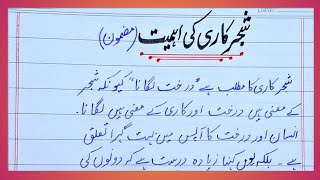 شجر کاری کی اہمیت (مضمون)
شجر کاری کا مطلب ہے "درخت لگانا" کیونکہ شجر
کے معنی ہیں درخت اور کاری کے معنی ہیں لگانا۔
انسان اور درخت کا آپس میں بہت گہرا تعلق
ہے۔ بلکہ یوں کہنا زیادہ درست ہے کہ دونوں کی